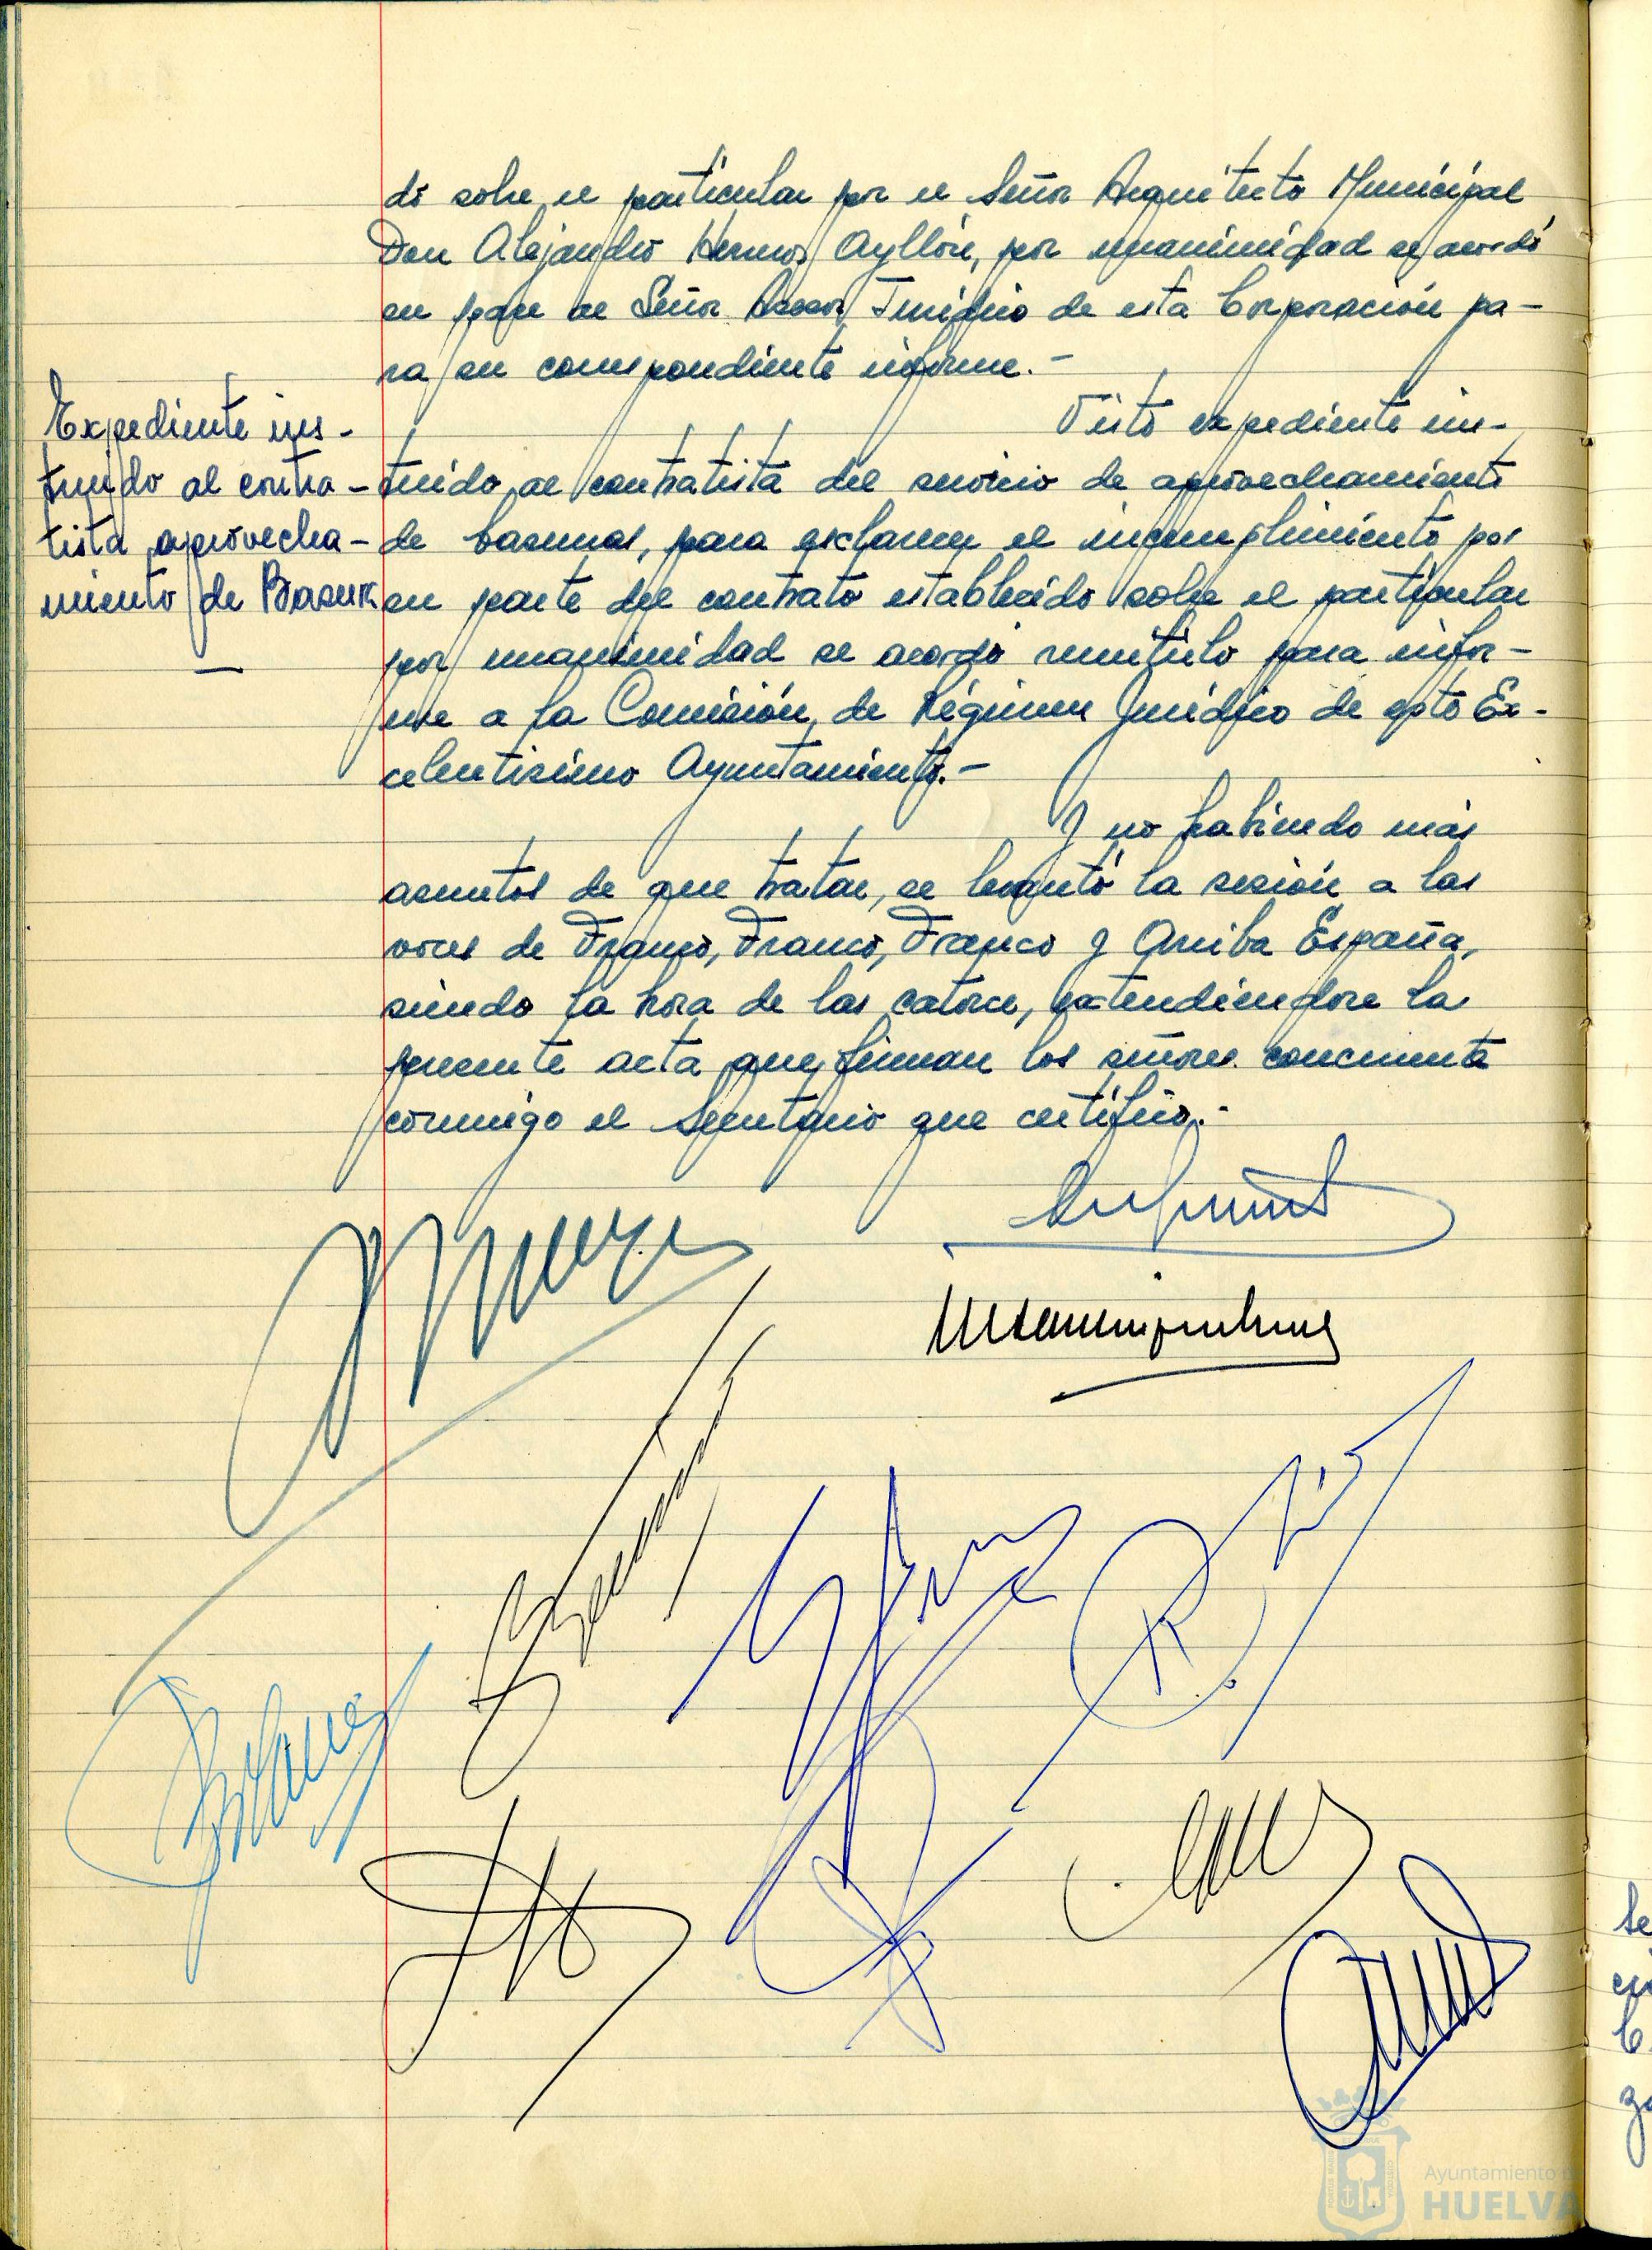 do sobre el particular por el Señor Arquitecto Municipal
Don Alejandro Herrero Ayllón, por unanimidad se acordó
su pase al Señor Asesor Jurídico de esta Corporación pa-
ra su correspondiente informe.-
Expediente ins-
truido al contra-
tista aprovecha-
miento de Basuras
Visto expediente ins-
truido al contratista del servicio de aprovechamiento
de basuras, para esclarecer el incumplimiento por
su parte del contrato establecido sobre el particular
por unanimidad se acordó remitirlo para infor-
me a la Comisión de Régimen Jurídico de esto Ex-
celentisimo Ayuntamiento.-
Y no habiendo más
asuntos de que tratar, se levantó la sesión a las
voces de Franco, Franco, Franco y Arriba España,
siendo la hora de las catorce, extendiendose la
presente acta que firman los señores concurrentes
conmigo el Secretario que certifico.-
Ayuntamiento de
HUELVA